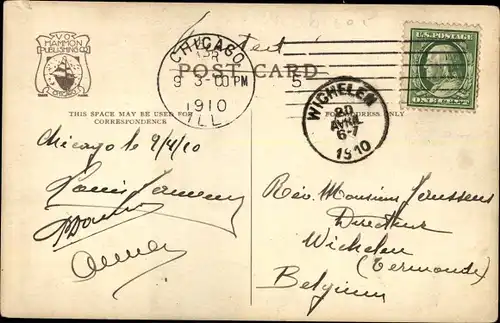 V.O.
HAMMON
PUBLISHING CO.
CHICAGO
POST CARD
CHICAGO
APR
9 3-00 PM
1910
ILL.
5
U.S. POSTAGE
WICHELEN
20
AVRIL
6-7
1910
THIS SPACE MAY BE USED FOR
CORRESPONDENCE
FOR ADDRESS ONLY
Chicago le 9/4/10
Rév. Monsieur Janssens
Directeur
Wichelen
(Termonde)
Belgium